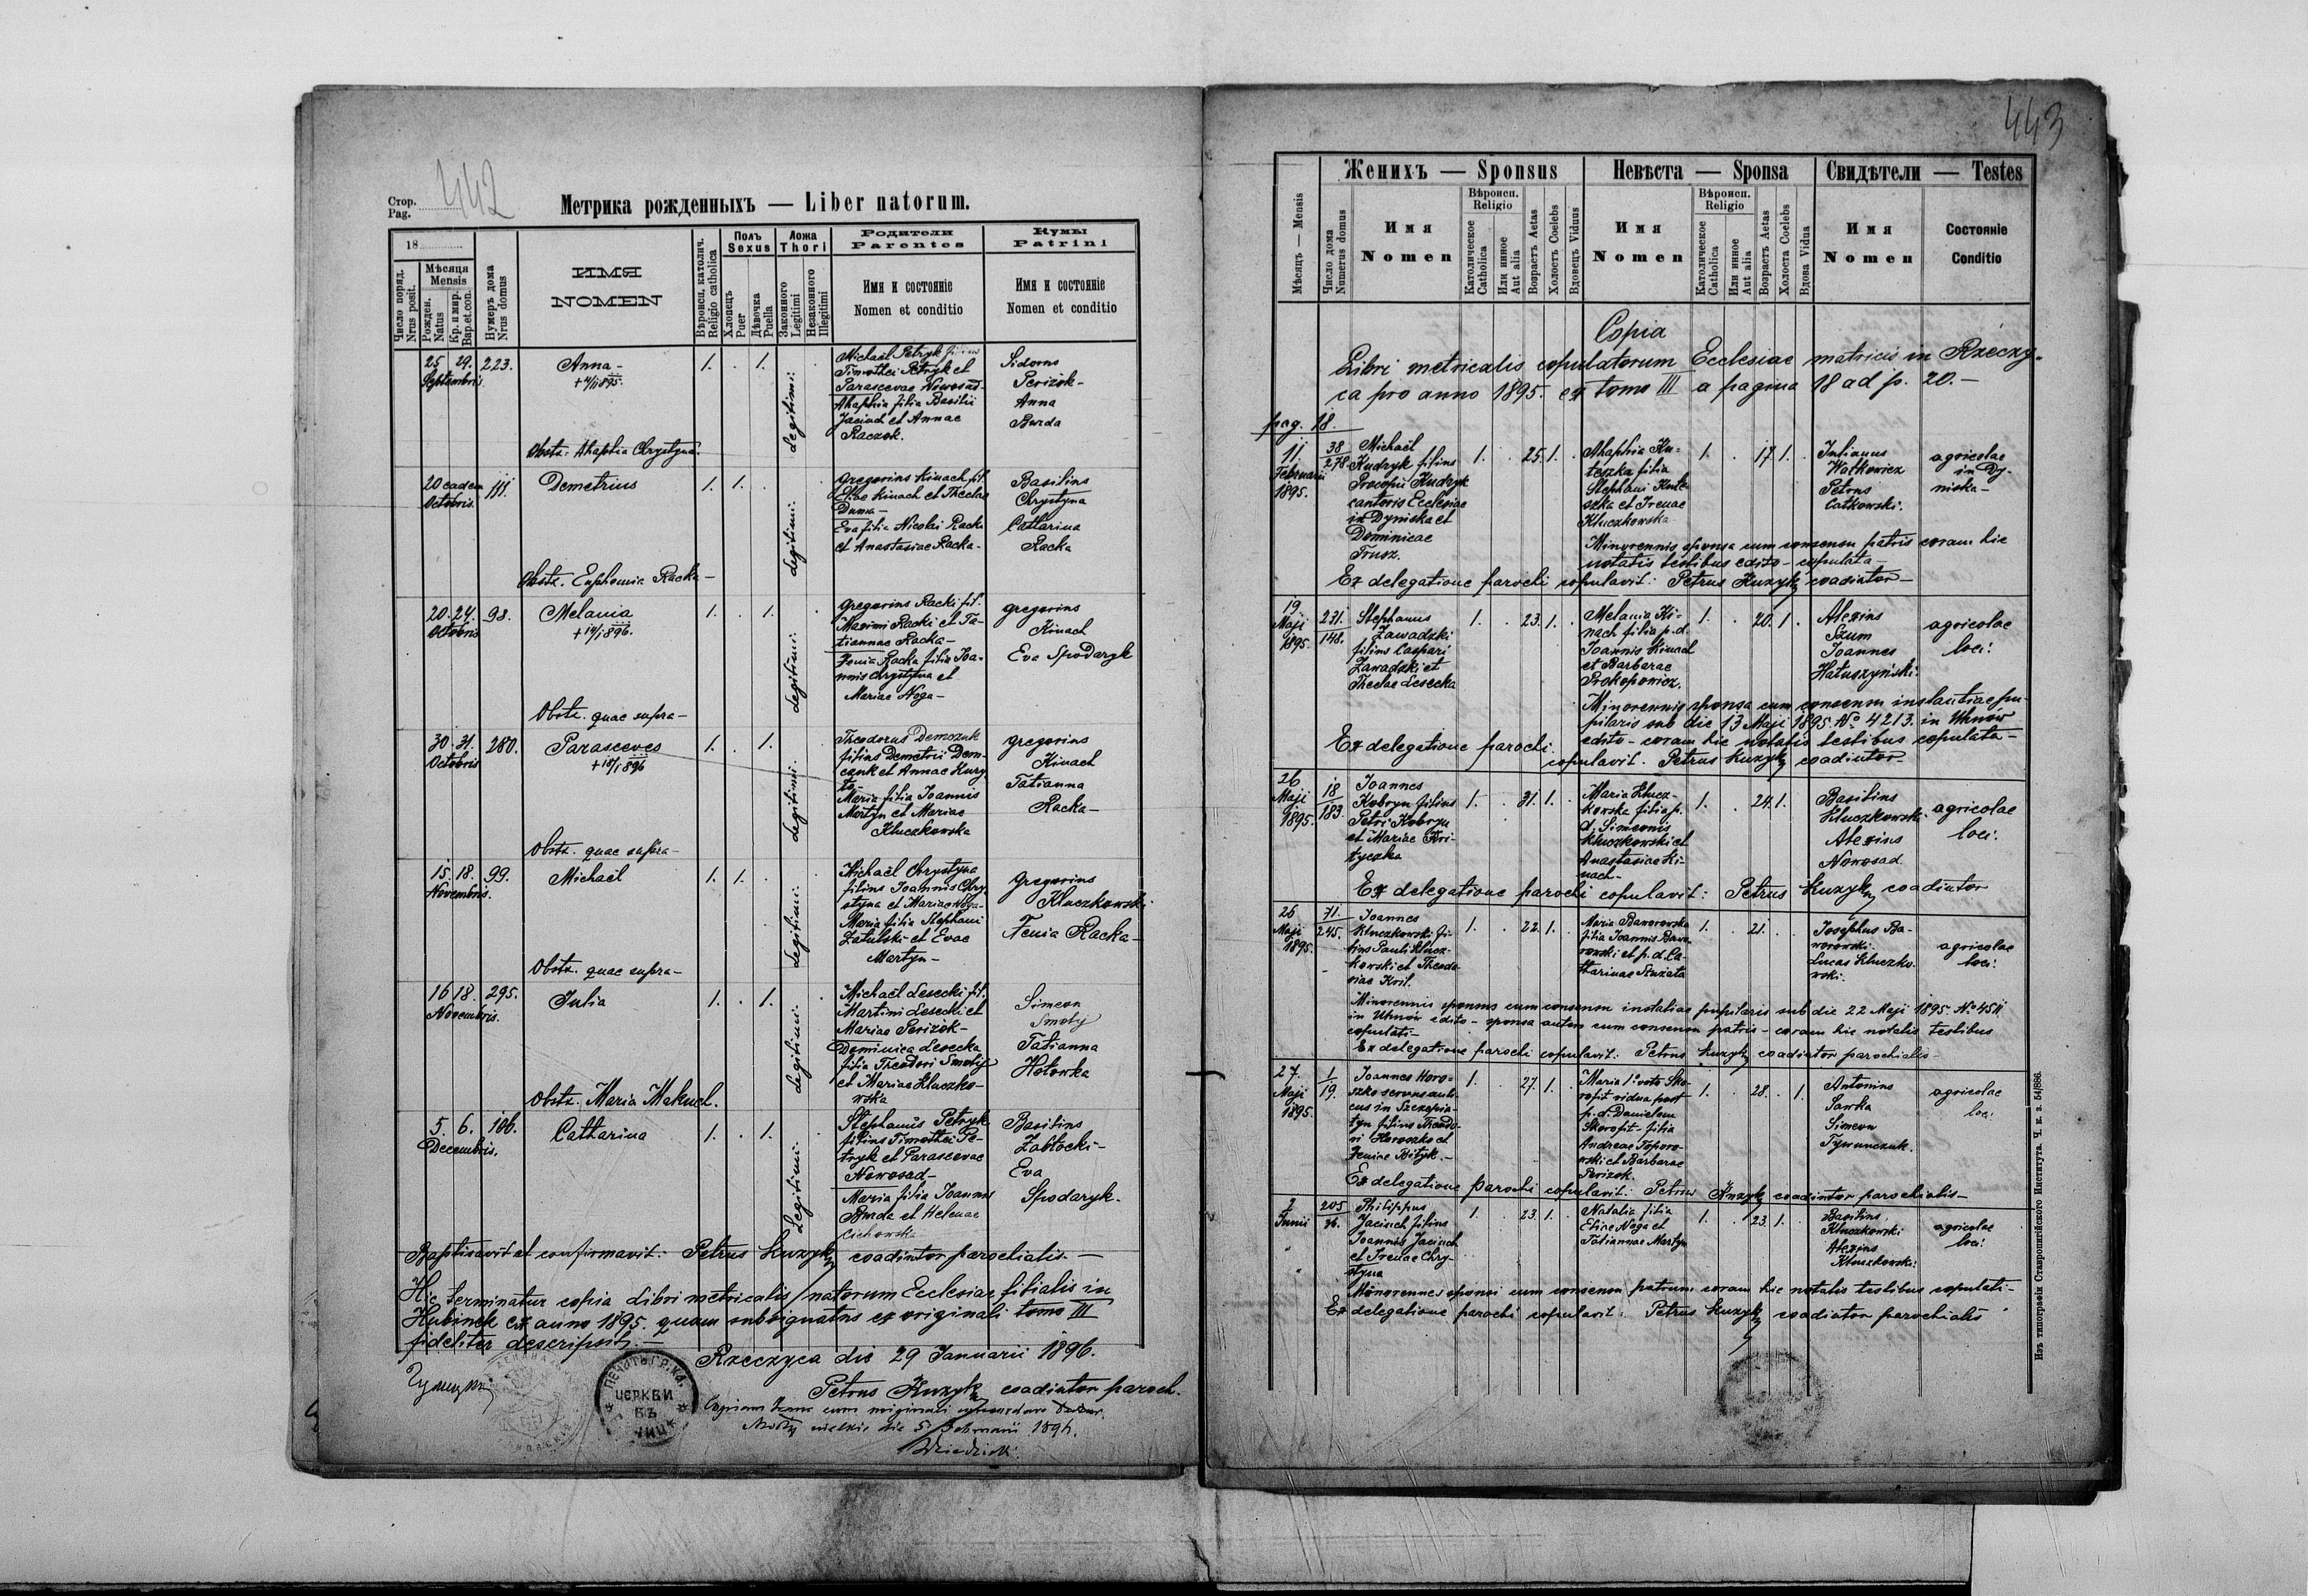 442
Стор.
Pag.
Метрика рожденныхъ — Liber natorum.
18
Число поряд.
Nrus posit.
Мѣсяця
Mensis
Рожден.
Natus
Кр. и мир.
Bap.et.con.
Нумеръ дома
Nrus domus
ИМЯ
NOMEN
Вѣроисп. католич.
Religio catholica
Полъ
Sexus
Хлопецъ
Puer
Дѣвочка
Puella
Ложа
Thori
Законного
Legitimi
Незаконного
Illegitimi
Родители
Parentes
Имя и состояніе
Nomen et conditio
Кумы
Patrini
Имя и состояніе
Nomen et conditio
25 29. 223. Anna - 1. . 1. .
Septembris
Legitimi.
Michaël Petryk filius
Timothei Petryk et
Parascevae Nowosad -
Ahaphia filia Basilii
Jacinch et Annae
Raczok.
Sidorus
Perizok -
Anna
Burda
Obstr. Ahaphia Chrystyna.
20 eadem 111. Demetrius 1. 1. . .
Octobris.
Legitimi.
Gregorius Kinach fil.
Eliae Kinach et Theclae
Duma -
Eva filia Nicolai Racki
et Anastasiae Racka -
Basilius
Chrystyna
Catharina
Racka
Obstr. Euphemia Racka -
20. 24. 98. Melania 1. . 1. .
Octobris
+ 19/1 896.
Legitimi.
Gregorius Racki fil.
Maximi Racki et Ta-
tiannae Racka -
Fenia Racka filia Ioa-
nnis Chrystyna et
Mariae Noga -
Gregorius
Kinach
Eva Spodaryk
Obstr. quae supra -
30. 31. 280. Parasceves 1. . 1. .
Octobris
+ 18/1 896
Legitimi.
Theodorus Demczuk
filius Demetrii Dem-
czuk et Annae Kury
Maria filia Joannis
Martyn et Mariae
Kluczkowska
Gregorius
Kinach
Tatianna
Racka -
Obstr. quae supra -
15. 18. 99. Michaël 1. 1. . .
Novembris.
Legitimi.
Michaël Chrystyna
filius Joannis Chry-
styna et Mariae Noga -
Maria filia Stephani
Zatulski et Evae
Martyn -
Gregorius
Kluczkowski
Fenia Racka -
Obstr. quae supra -
16 18. 295. Julia 1. . 1. .
Novembris.
Legitimi.
Michaël Lesecki fil.
Martini Lesecki et
Mariae Perizok -
Dominica Lesecka
filia Theodori Smolij
et Mariae Kluczko-
wska
Simeon
Smolij
Tatianna
Hołowka
Obstr. Maria Makuch.
5. 6. 106. Catharina 1. . 1. .
Decembris.
Legitimi.
Stephanus Petryk
filius Timothei Pe-
tryk et Parascevae
Nowosad -
Maria filia Joannis
Burda et Helenae
Cichowska
Basilius
Zabłocki -
Eva
Spodaryk.
Baptisavit et confirmavit: Petrus Kuzyk coadiutor parochialis. —
Hic terminatur copia Libri metricalis natorum Ecclesiae filialis in
Hubinek ex anno 1895. quam subsignatus ex originali tomo III
fideliter descripsit. —
Rzeczyca die 29 Januarii 1896.
Petrus Kuzyk coadiutor paroch.
ПЕЧАТЬ ГР. КА.
ЦЕРКВИ
ВЪ
443
Мѣсяцъ — Mensis
Число дома
Numerus domus
Женихъ — Sponsus
Имя
Nomen
Вѣроисп.
Religio
Католическое
Catholica
Или инное
Aut alia
Возрастъ Aetas
Холостъ Coelebs
Вдовецъ Viduus
Невѣста — Sponsa
Имя
Nomen
Вѣроисп.
Religio
Католическое
Catholica
Или инное
Aut alia
Возрастъ Aetas
Холоста Coelebs
Вдова Vidua
Свидѣтели — Testes
Имя
Nomen
Состояніе
Conditio
Copia
Libri metricalis copulatorum Ecclesiae matricis in Rzeczy-
ca pro anno 1895. ex tomo III a pagina 18 ad p. 20. —
pag. 18.
11
Februarii
1895.
38
278.
Michaël
Kudryk filius
Procopii Kudryk
cantoris Ecclesiae
in Dyniska et
Dominicae
Trusz.
1. . 25. 1. .
Ahaphia Ku-
teszka filia
Stephani Kute-
szka et Irenae
Kluczkowska
1. . 17 1. .
Julianus
Watkowicz
Petrus
Całkowski.
agricolae
in Dy-
niska -
Minorennis sponsa cum consensu patris coram hic
notatis testibus edito - copulata
Ex delegatione parochi copulavit: Petrus Kuzyk coadiutor —
19
Maji
1895.
231.
148.
Stephanus
Zawadzki
filius Caspari
Zawadzki et
Theclae Lesecka
1. . 23. 1. .
Melania Ki-
nach filia p. d.
Joannis Kinach
et Barbarae
Prokopowicz.
1. . 20. 1. .
Alexius
Szum
Joannes
Hałuszyński.
agricolae
loci.
Minorennis sponsa cum consensu instantiae pu-
pilaris sub die 13 Maji 1895 No 4213. in Uhnow
edito - coram hic notatis testibus copulata -
Ex delegatione parochi
copulavit. Petrus Kuzyk coadiutor
26
Maji
1895.
18
183.
Joannes
Kobryn filius
Petri Kobryn
et Mariae Kri-
tyczka
1. . 31. 1. .
Maria Klucz-
kowska filia p.
d. Simeonis
Kluczkowski et
Anastasiae Ki-
nach -
1. . 24. 1. .
Basilius
Kluczkowski
Alexius
Nowosad
agricolae
loci.
Ex delegatione parochi copulavit: Petrus Kuzyk coadiutor
26
Maji
1895.
71.
245.
Joannes
Kluczkowski fi-
lius Pauli Klucz-
kowski et Theodo-
siae Kril.
1. . 22. 1. .
Maria Baworowska
filia Joannis Bawo-
rowski et p. d. Ca-
tharinae
1. . 21. .
Josephus Ba-
worowski.
Lucas Kluczko-
wski.
agricolae
loci.
Minorennis sponsus cum consensu instatiae pupilaris sub die 22 Maji 1895. No 4511
in Uhnów edito - sponsa autem cum consensu patris - coram hic notatis testibus
copulati -
Ex delegatione parochi copulavit: Petrus Kuzyk coadiutor parochialis -
27.
Maji
1895.
1
19.
Joannes Horo-
szko servus auli-
cus in Szczepia-
tyn filius Theodo-
ri Horoszko et
Feniae Bityk. -
1. . 27. 1. .
Maria 1o voto Sko-
rofit vidua post
p. d. Danielem
Skorofit - filia
Andreae Toporo-
wski et Barbarae
Perizok.
1. . 28. . 1.
Antonius
Sawka
Simeon
Tywunczuk.
agricolae
loci
Ex delegatione parochi copulavit: Petrus Kuzyk coadiutor parochialis -
2
Junii
205
36.
Philippus
Jacinch filius
Joannis Jacinch
et Irenae Chry-
styna
1. . 23. 1. .
Natalia filia
Eliae Noga et
Tatiannae Martyn
1. . 23. 1. .
Basilius
Kluczkowski
Alexius
Kluczkowski.
agricolae
loci.
Minorennes sponsi cum consensu patrum coram hic notatis testibus copulati -
Ex delegatione parochi copulavit: Petrus Kuzyk coadiutor parochialis
Изъ типографіи Ставропигійского Института. Ч. к. в. 54/886.